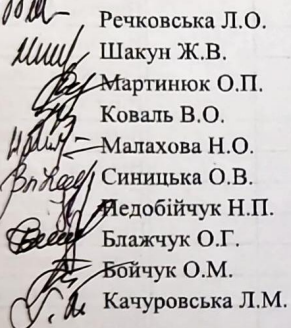 Речковська Л.О.
Шакун Ж.В.
Мартинюк О.П.
Коваль В.О.
Малахова Н.О.
Синицька О.В.
Недобійчук Н.П.
Блажчук О.Г.
Бойчук О.М.
Качуровська Л.М.